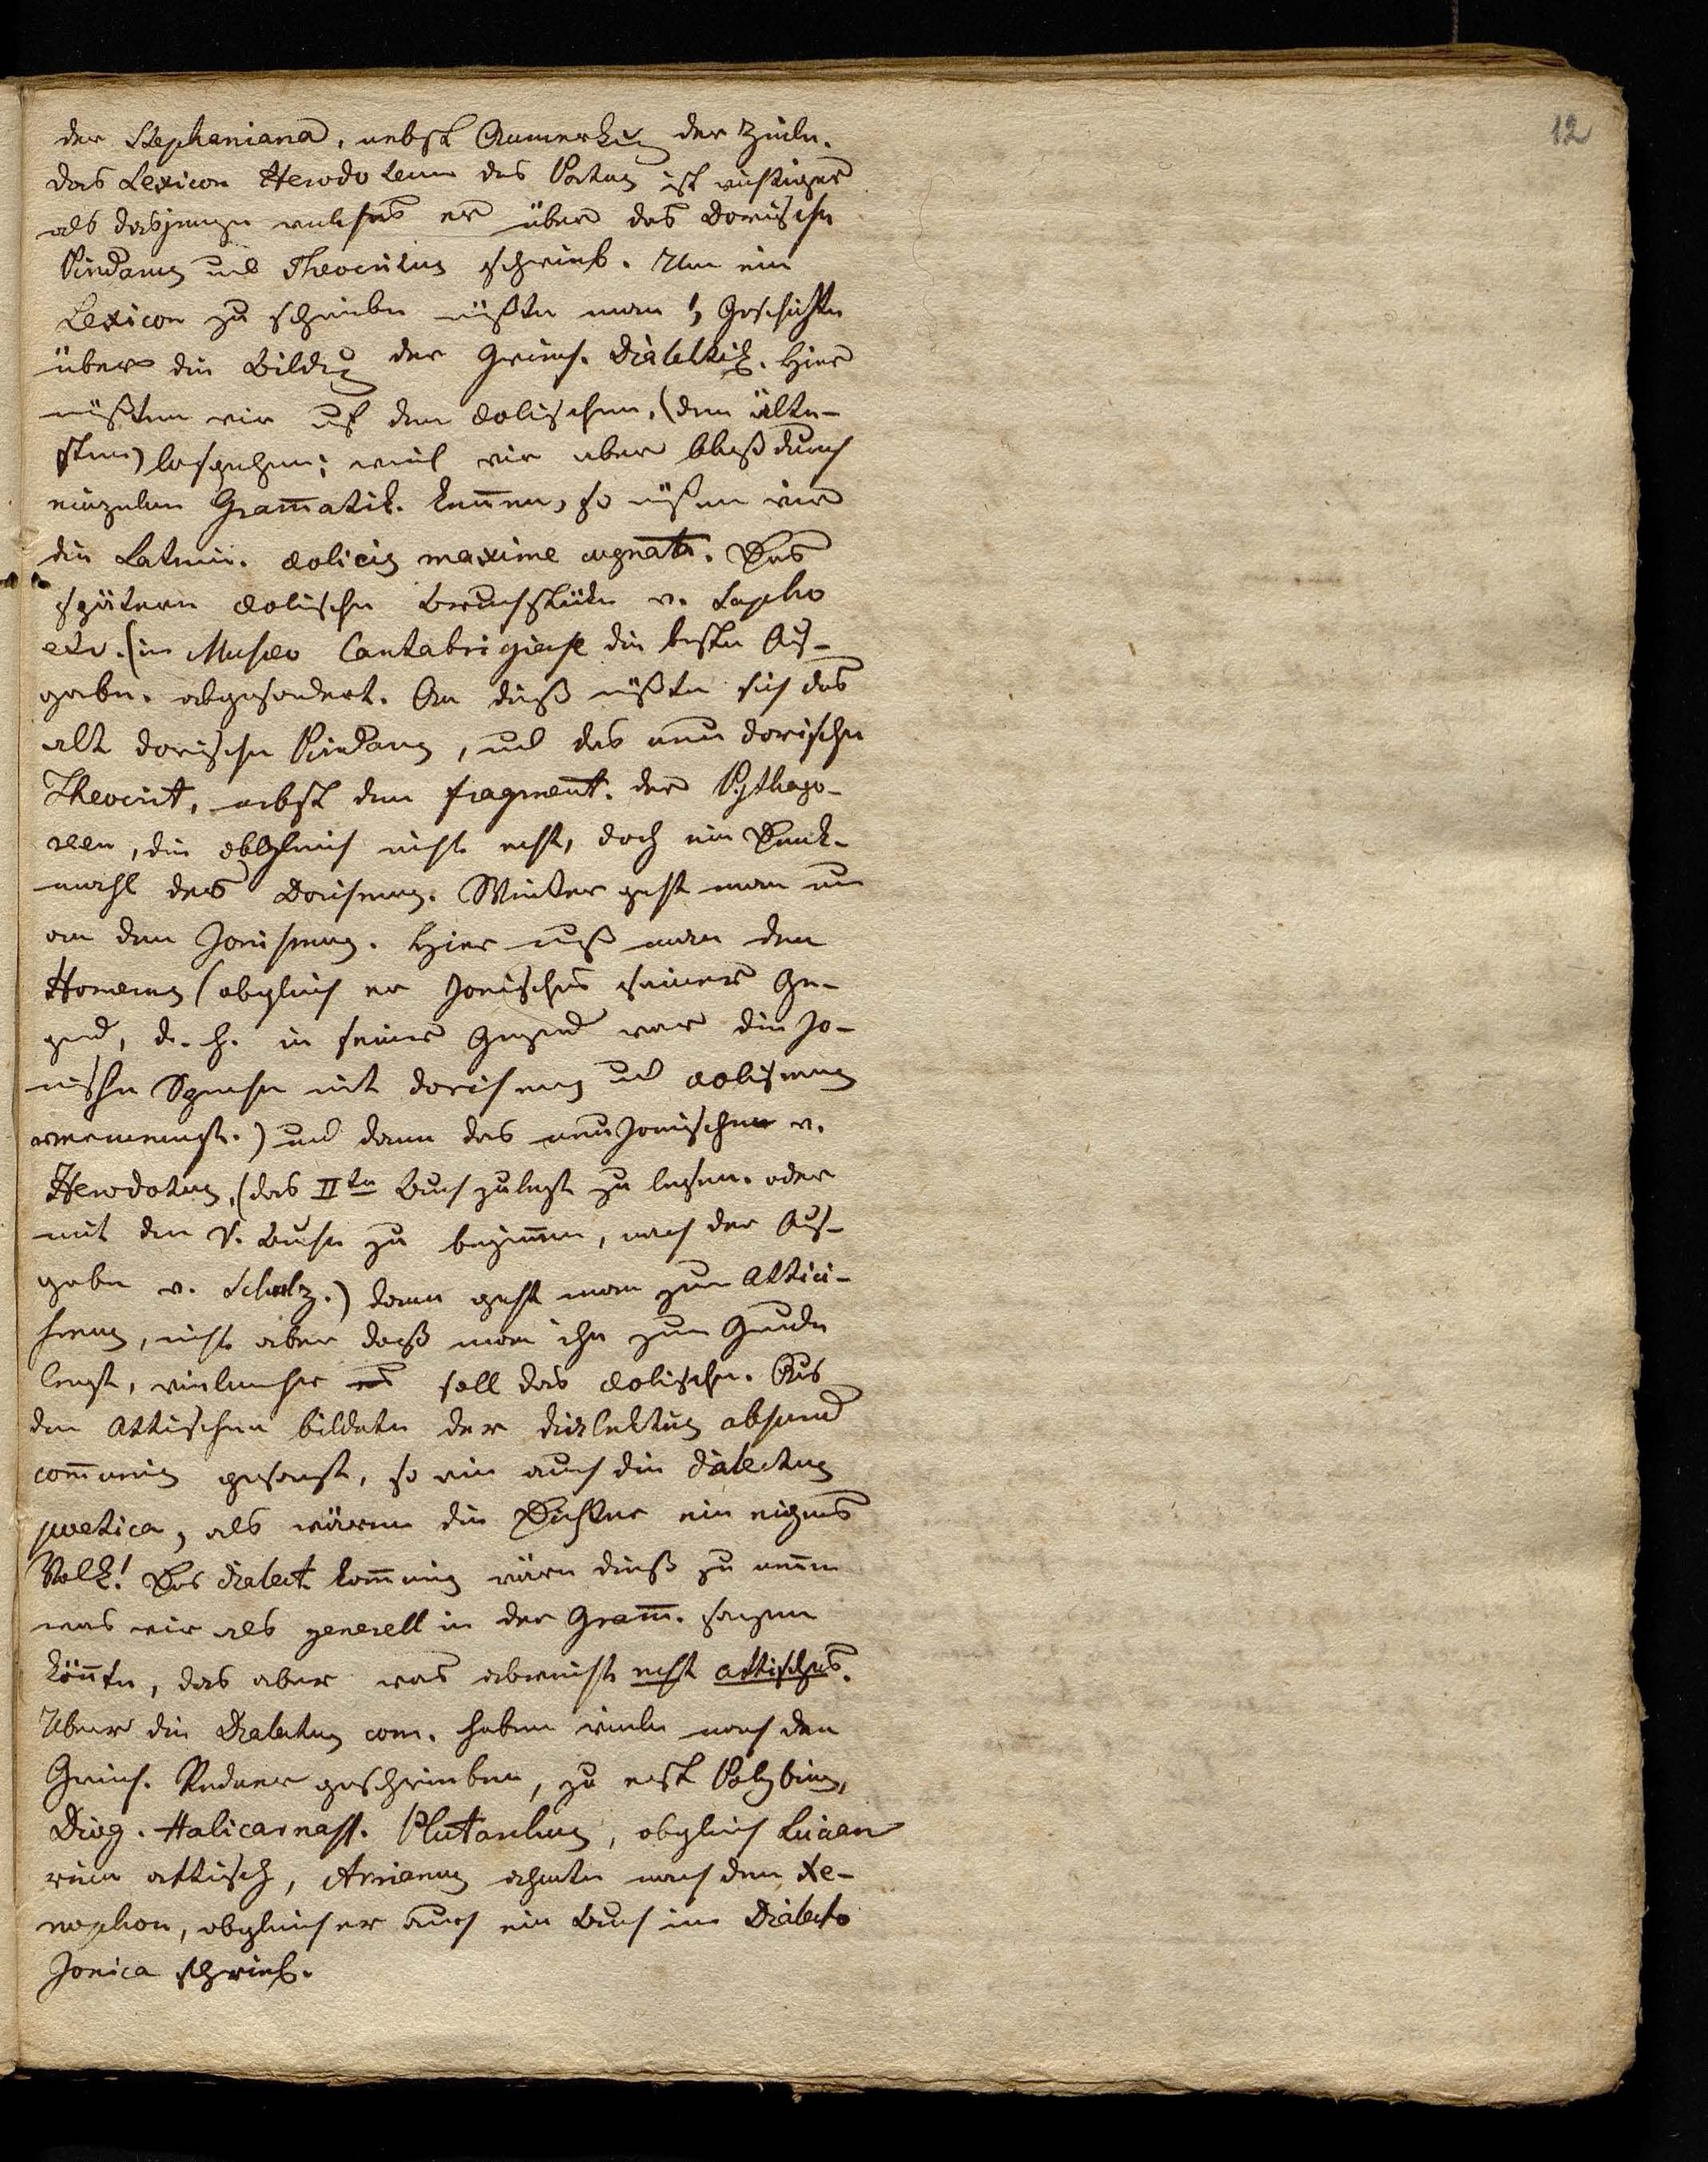 12
der Stephaniana, nebst Anmerkung der Zeiln.
das Lexicon Herodoteum des Portus ist wichtiger
als dasjenige welches er über das Dorische
Pindarus und Theocritus schrieb. Um ein
Lexicon zu schreiben müßte man Geschichte
über die Bildung der Griech. Dialektik. Hier
müßten wir auf den aolischen, (den älte-
sten) losgehen; weil wir aber bloß durch
einzelne Gram̄atik. ken̄en, so müßen wir
die Latein. aolicis maxime cognata. Das
spätern aolische Bruchstüke v. Sapho
etc. (in Museo Cantabrigiense die beste Aus-
gabe. abgesondert. An dieß müßte sich das
alt dorische Pindarus, und das neu dorische
Theocrit, nebst den fragment. der Pythago-
reer, die obgleich nicht echt, doch ein Denk-
mahl des Dorismus. Weiter geht man nun
an den Jonismus. Hier muß man den
Homerus (obgleich er Jonisches seiner Ge-
gend, d. h. in seiner Gegend war die Jo-
nische Sprache mit dorismus und aolismus
vermengt.) und dann das neu Jonischen v.
Herodotus, (das IIte Buch zulezt zu lesen. oder
mit dem V. Buche zu begin̄en, nach der Aus-
gabe v. Schulz.) dann geht man zum Attici-
smus, nicht aber daß man ihn zum Grunde
legt, vielmehr soll das aolische. Aus
dem Attischen bildete der dialektus absurd
com̄unis gesagt, so wie auch die dialectus
poetica, als wären die Dichter ein eigenes
Volk! Das dialect. kom̄unis wäre dieß zu nen̄en
was wir als generell in der Gram̄. sagen
kön̄te, das aber was abweicht echt attisches.
Über die Dialectus com. haben viele nach den
Griech. Redner geschrieben, zu erst Polybius,
Diog. Halicarnass. Plutarchus, obgleich Lucian
rein attisch, Arrianus ahmte nach dem Xe-
nophon, obgleich er auch ein Buch im Dialecto
Jonica schrieb.